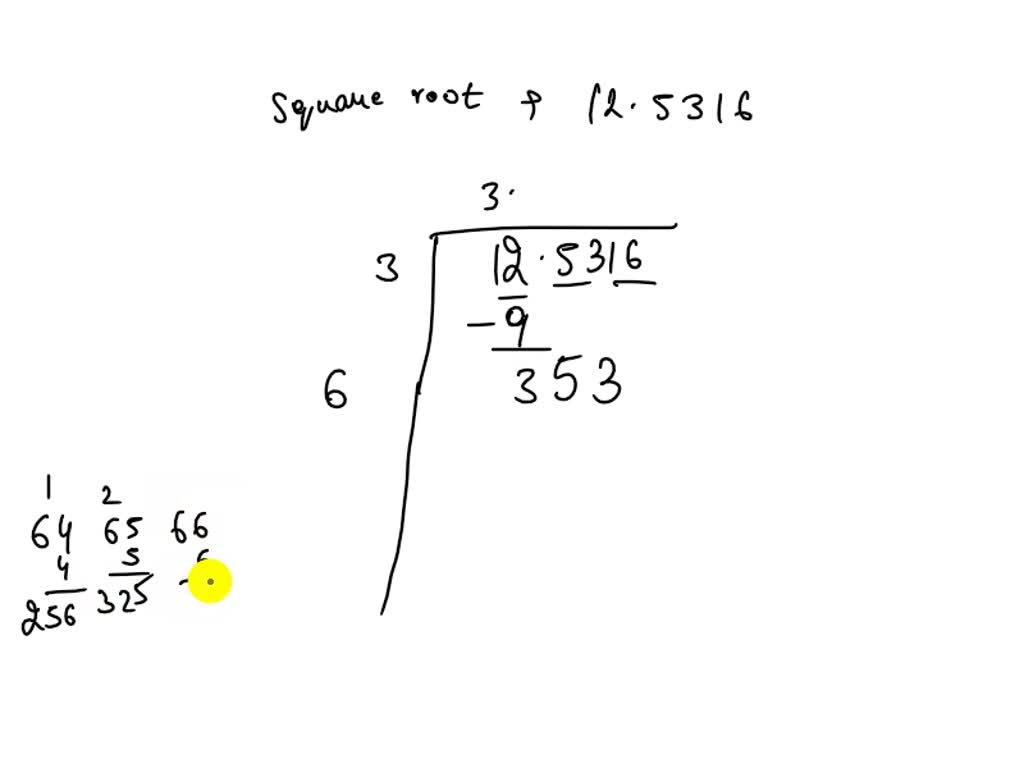 Square root of 12.5316
3.
3 12.5316
-9
6 353
1 2
64 65 66
4 5 6
256 325